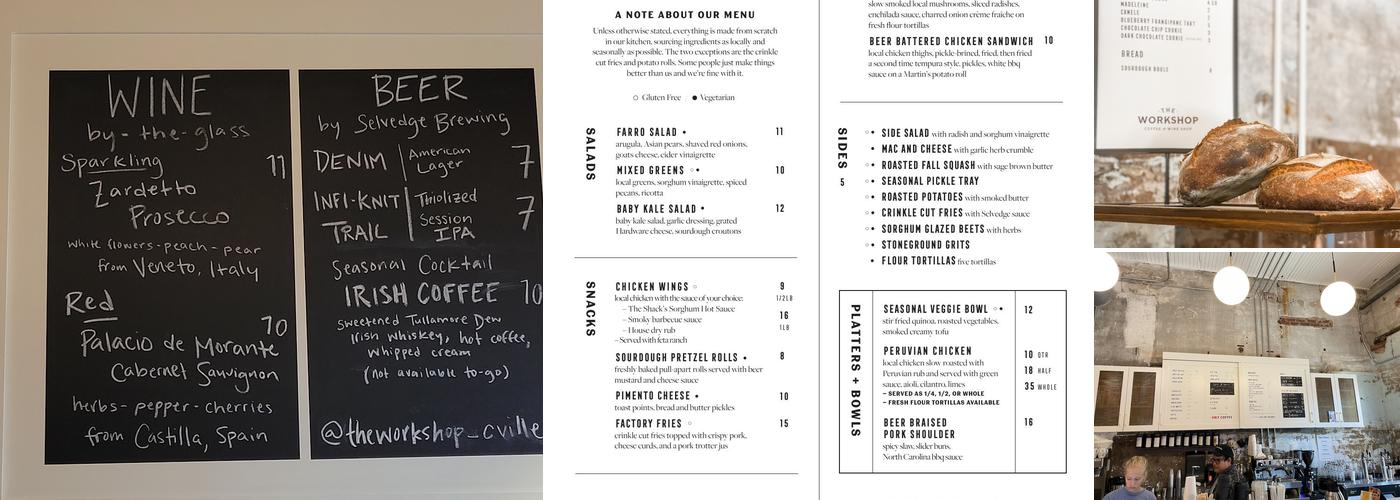 WINE
by-the-glass
Sparkling 11
Zardetto
Prosecco
white flowers-peach-pear
from Veneto, Italy
Red
10
Palacio de Morante
Cabernet Sauvignon
herbs-pepper-cherries
from Castilla, Spain
BEER
by Selvedge Brewing
DENIM American Lager 7
INFI-KNIT TRAIL Thiolized Session IPA 7
Seasonal Cocktail
IRISH COFFEE 10
sweetened Tullamore Dew
Irish whiskey, hot coffee,
whipped cream
(not available to-go)
@theworkshop_cville
A NOTE ABOUT OUR MENU
Unless otherwise stated, everything is made from scratch
in our kitchen, sourcing ingredients as locally and
seasonally as possible. The two exceptions are the crinkle
cut fries and potato rolls. Some people just make things
better than us and we're fine with it.
○ Gluten Free ● Vegetarian
SALADS
FARRO SALAD • 11
arugula, Asian pears, shaved red onions,
goats cheese, cider vinaigrette
MIXED GREENS ○• 10
local greens, sorghum vinaigrette, spiced
pecans, ricotta
BABY KALE SALAD • 12
baby kale salad, garlic dressing, grated
Hardware cheese, sourdough croutons
SNACKS
CHICKEN WINGS ○ 9
local chicken with the sauce of your choice: 1/2LB
– The Shack's Sorghum Hot Sauce
– Smoky barbecue sauce 16
– House dry rub 1LB
– Served with feta ranch
SOURDOUGH PRETZEL ROLLS • 8
freshly baked pull-apart rolls served with beer
mustard and cheese sauce
PIMENTO CHEESE • 10
toast points, bread and butter pickles
FACTORY FRIES ○ 15
crinkle cut fries topped with crispy pork,
cheese curds, and a pork trotter jus
slow smoked local mushrooms, sliced radishes,
enchilada sauce, charred onion crème fraiche on
fresh flour tortillas
BEER BATTERED CHICKEN SANDWICH 10
local chicken thighs, pickle-brined, fried, then fried
a second time tempura style, pickles, white bbq
sauce on a Martin's potato roll
SIDES
5
○• SIDE SALAD with radish and sorghum vinaigrette
• MAC AND CHEESE with garlic herb crumble
○• ROASTED FALL SQUASH with sage brown butter
○• SEASONAL PICKLE TRAY
○• ROASTED POTATOES with smoked butter
○• CRINKLE CUT FRIES with Selvedge sauce
○• SORGHUM GLAZED BEETS with herbs
○• STONEGROUND GRITS
• FLOUR TORTILLAS five tortillas
PLATTERS + BOWLS
SEASONAL VEGGIE BOWL ○• 12
stir fried quinoa, roasted vegetables,
smoked creamy tofu
PERUVIAN CHICKEN 10 QTR
local chicken slow roasted with
Peruvian rub and served with green 18 HALF
sauce, aioli, cilantro, limes 35 WHOLE
– SERVED AS 1/4, 1/2, OR WHOLE
– FRESH FLOUR TORTILLAS AVAILABLE
BEER BRAISED 16
PORK SHOULDER
spicy slaw, slider buns,
North Carolina bbq sauce
MADELEINE
CANELE
BLUEBERRY FRANGIPANE TART
CHOCOLATE CHIP COOKIE
DARK CHOCOLATE COOKIE
BREAD
SOURDOUGH BOULE
THE
WORKSHOP
COFFEE + WINE SHOP